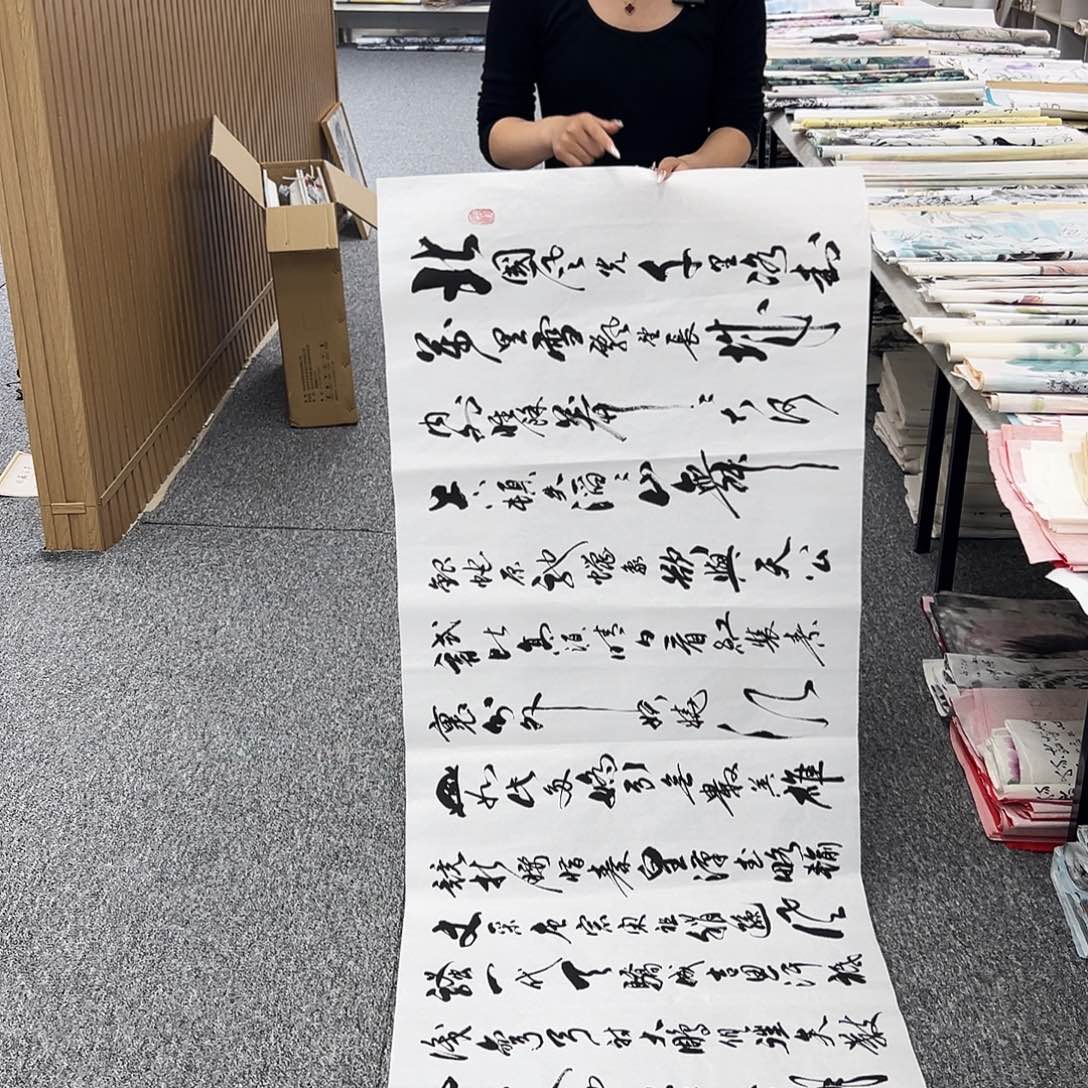 北國風光千里冰封
萬里雪飄望長城
内外惟餘莽莽大河
上下頓失滔滔山舞
銀蛇原馳蠟象欲與天公
試比高須晴日看紅裝素
裹分外妖嬈江
山如此多嬌引無數英雄
競折腰惜秦皇漢武略輸
文采唐宗宋祖稍遜風
騷一代天驕成吉思汗祇
識彎弓射大鵰俱往矣數